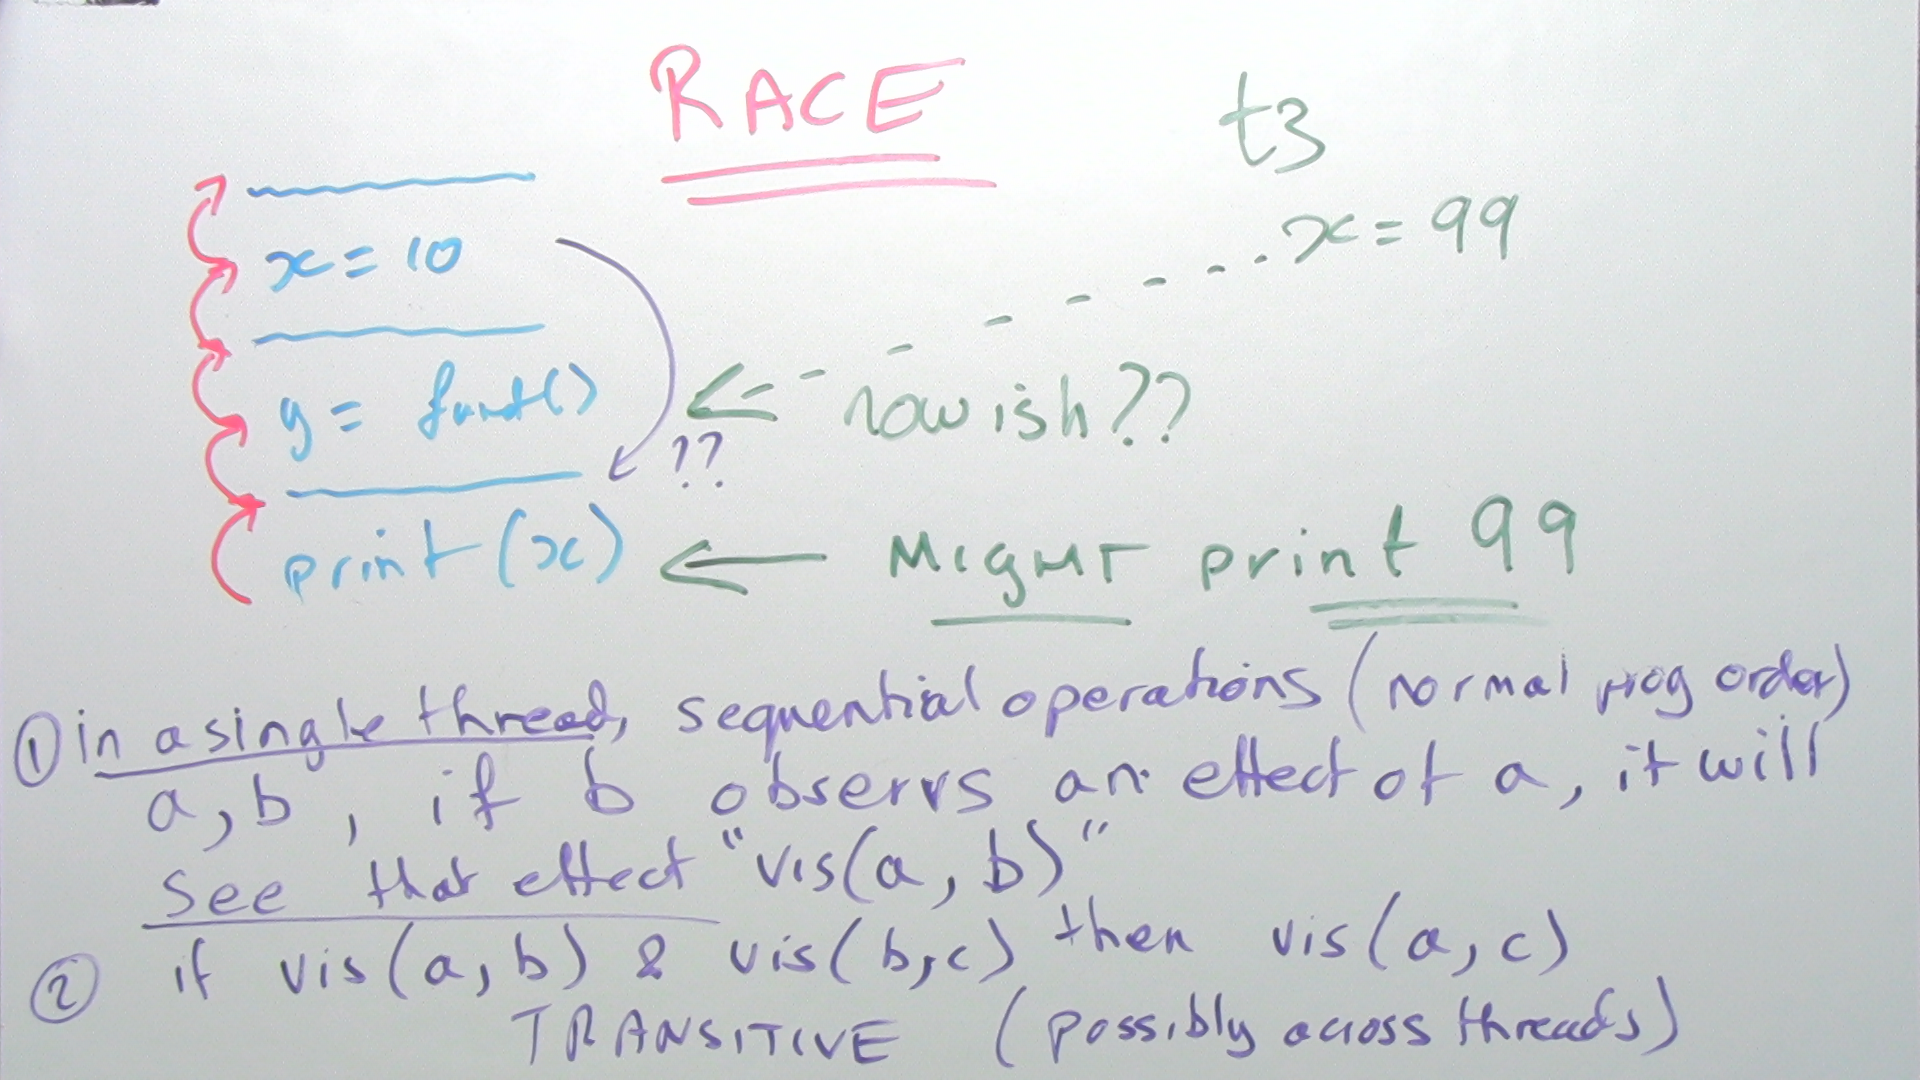 RACE
t3
x = 99
x = 10
y = funct()
nowish??
??
print (x)
MIGHT print 99
① in a single thread, sequential operations (normal prog order)
a, b, if b observrs an effect of a, it will
see that effect "vis(a, b)"
② if vis(a, b) & vis(b,c) then vis(a, c)
TRANSITIVE (possibly across threads)